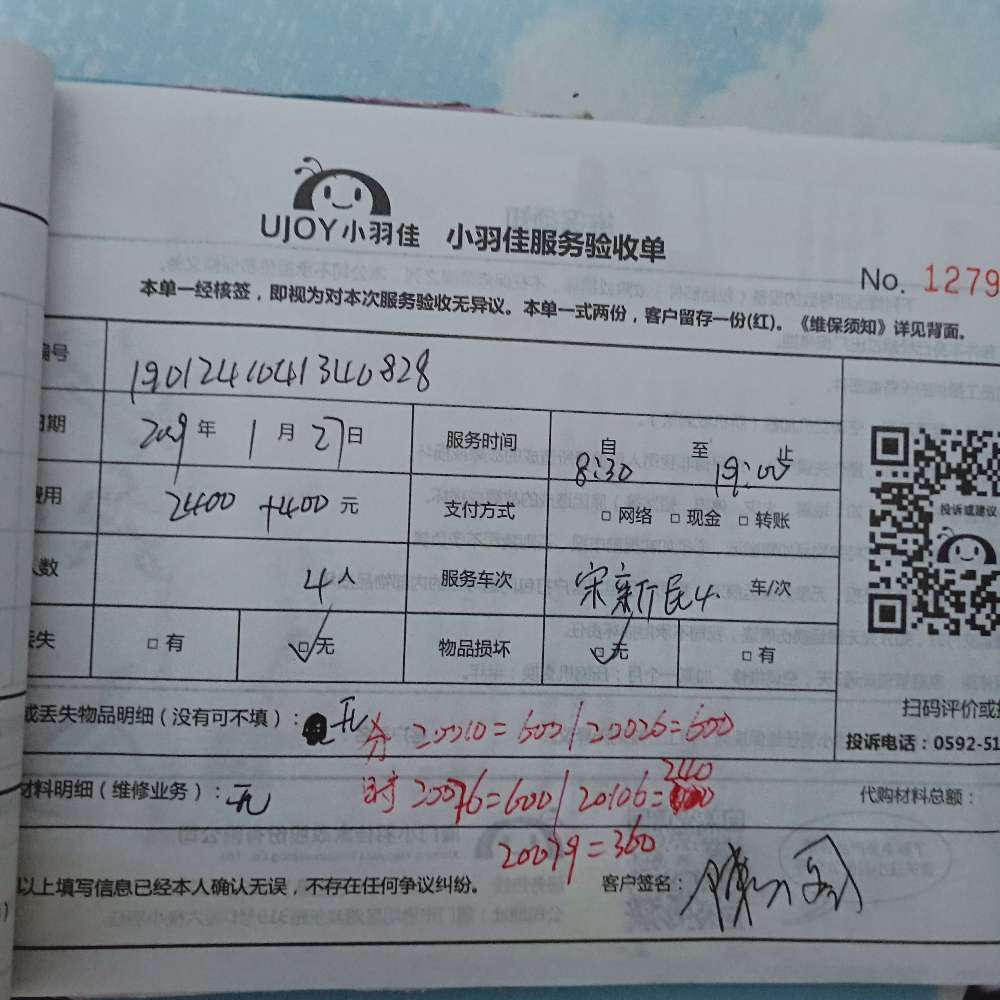 UJOY小羽佳 小羽佳服务验收单
No. 1279
本单一经核签，即视为对本次服务验收无异议。本单一式两份，客户留存一份(红)。《维保须知》详见背面。
编号 190124104134082​8
日期 2019年 1月27日 服务时间 自8:30 至19:00止
费用 2400 +400 元 支付方式 □网络 □现金 □转账
人数 4人 服务车次 车/次
丢失 □有 ☑无 物品损坏 ☑无 □有
投诉或建议
扫码评价或
或丢失物品明细（没有可不填）：无 分 20010=600/20026=600
投诉电话：0592-51
材料明细（维修业务）：无 时 20076=600/20106=240
代购材料总额：
20079=360
以上填写信息已经本人确认无误，不存在任何争议纠纷。 客户签名：